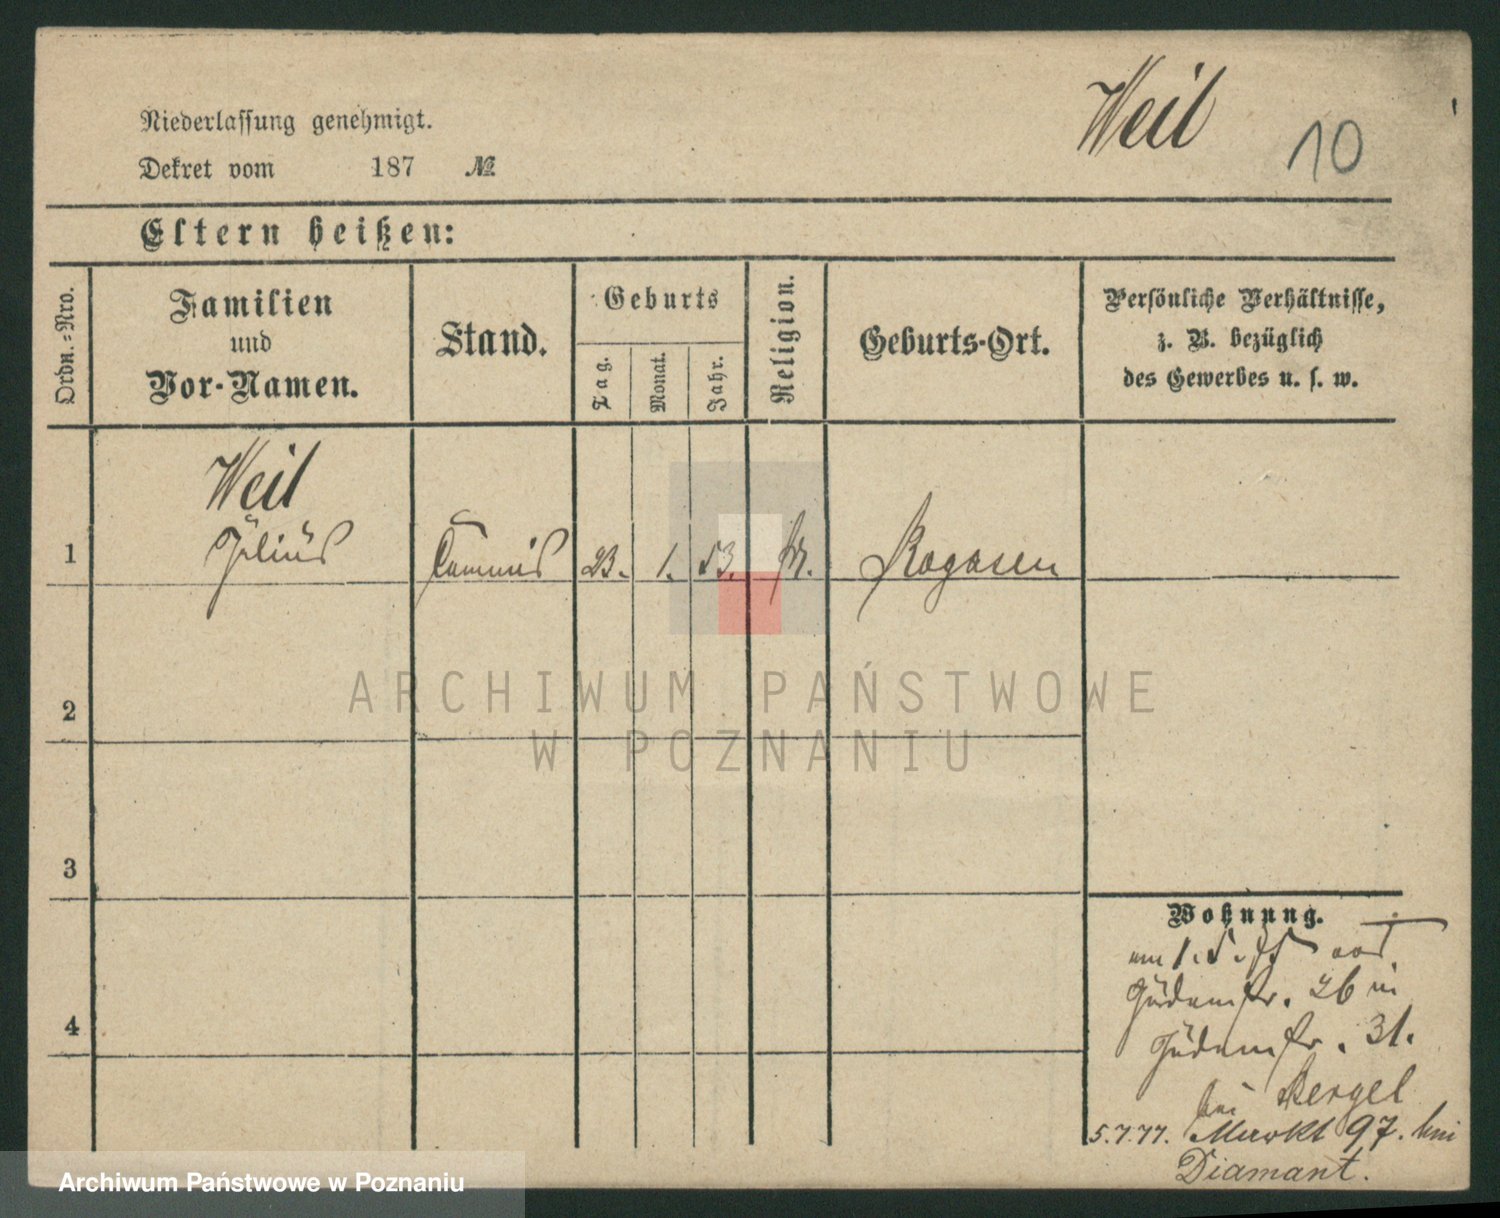 Weil
10
Niederlassung genehmigt.
Dekret vom 187 №
Eltern heißen:
Ordn.=Nro.
Familien
und
Vor-Namen.
Stand.
Geburts
Tag.
Monat.
Jahr.
Religion.
Geburts-Ort.
Persönliche Verhältnisse,
z. B. bezüglich
des Gewerbes u. s. w.
Weil
1 Julius Commis 23. 1. 53. Rogasen
2
3
4
Wohnung.
Judenstr. 26 in
Judenstr. 31.
bei Bergel
5.7.77. Markt 97. bei
Diamant.
ARCHIWUM PAŃSTWOWE
W POZNANIU
Archiwum Państwowe w Poznaniu